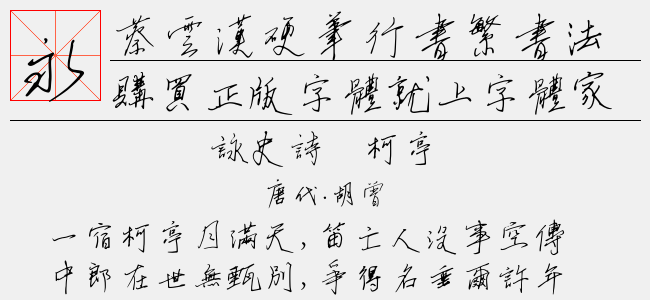 永
蔡雲漢硬筆行書繁書法
購買正版字體就上字體家
詠史詩 柯亭
唐代·胡曾
一宿柯亭月滿天,笛亡人沒事空傳
中郎在世無甄別,爭得名垂爾許年